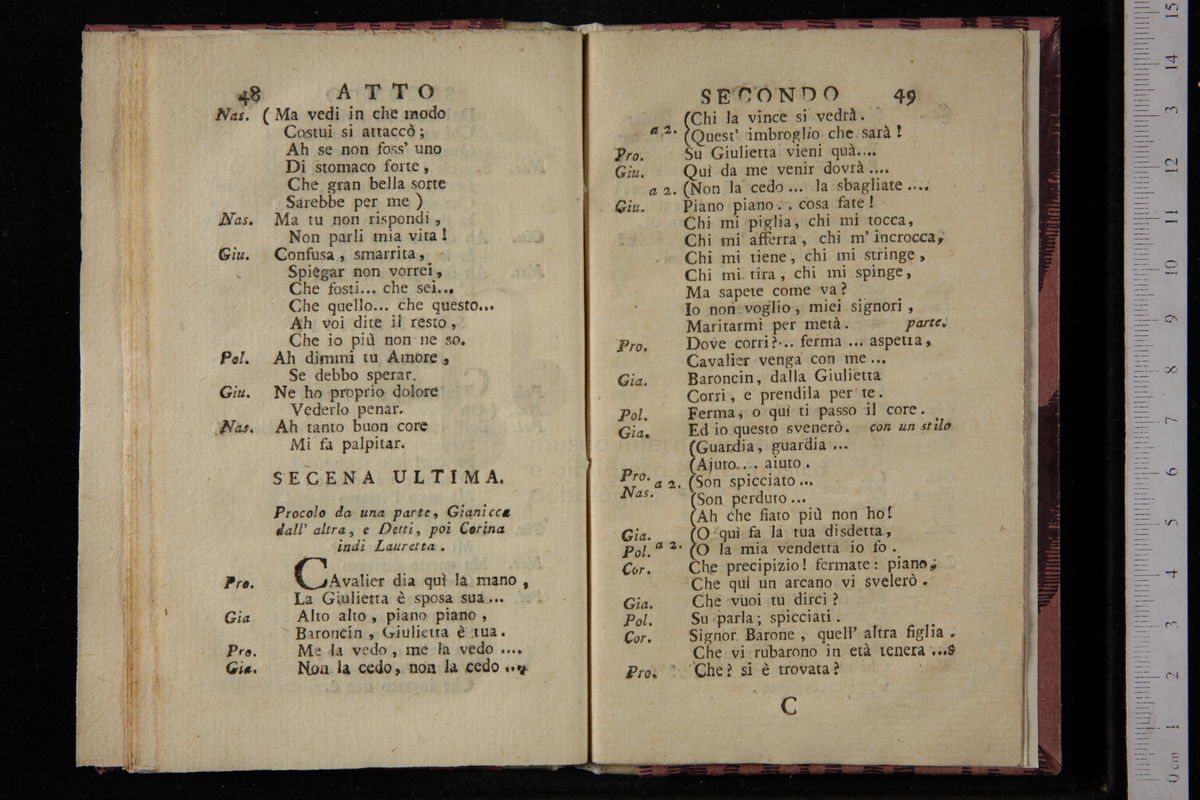 48 ATTO
Nas. ( Ma vedi in che modo
Costui si attaccò ;
Ah se non foss' uno
Di stomaco forte ,
Che gran bella sorte
Sarebbe per me )
Nas. Ma tu non rispondi ,
Non parli mia vita !
Giu. Confusa , smarrita ,
Spiegar non vorrei ,
Che fosti... che sei...
Che quello... che questo...
Ah voi dite il resto ,
Che io più non ne so.
Pol. Ah dimmi tu Amore ,
Se debbo sperar.
Giu. Ne ho proprio dolore
Vederlo penar.
Nas. Ah tanto buon core
Mi fa palpitar.
SECENA ULTIMA.
Procolo da una parte, Gianicca
dall' altra, e Detti, poi Corina
indi Lauretta .
Pro. CAvalier dia quì la mano ,
La Giulietta è sposa sua ...
Gia Alto alto , piano piano ,
Baroncin , Giulietta è tua .
Pro. Me la vedo , me la vedo ....
Gia. Non la cedo, non la cedo ...
SECONDO 49
(Chi la vince si vedrà .
a 2. (Quest' imbroglio che sarà !
Pro. Su Giulietta vieni quà....
Giu. Quì da me venir dovrà ....
a 2. (Non la cedo ... la sbagliate ....
Giu. Piano piano . . cosa fate !
Chi mi piglia, chi mi tocca,
Chi mi afferra , chi m' incrocca,
Chi mi tiene , chi mi stringe ,
Chi mi tira , chi mi spinge,
Ma sapete come va ?
Io non voglio , miei signori ,
Maritarmi per metà . parte.
Pro. Dove corri ?... ferma ... aspetta ,
Cavalier venga con me ...
Gia. Baroncin, dalla Giulietta
Corri , e prendila per te .
Pol. Ferma, o quì ti passo il core .
Gia. Ed io questo svenerò. con un stilo
(Guardia, guardia ...
(Ajuto.... aiuto .
Pro. a 2. (Son spicciato ...
Nas. (Son perduto ...
(Ah che fiato più non ho!
Gia. (O quì fa la tua disdetta,
Pol. a 2. (O la mia vendetta io fo .
Cor. Che precipizio ! fermate : piano,
Che quì un arcano vi svelerò .
Gia. Che vuoi tu dirci ?
Pol. Su parla ; spicciati .
Cor. Signor Barone , quell' altra figlia .
Che vi rubarono in età tenera ...
Pro. Che? si è trovata ?
C
15
14
13
12
11
10
9
8
7
6
5
4
3
2
1
0 cm